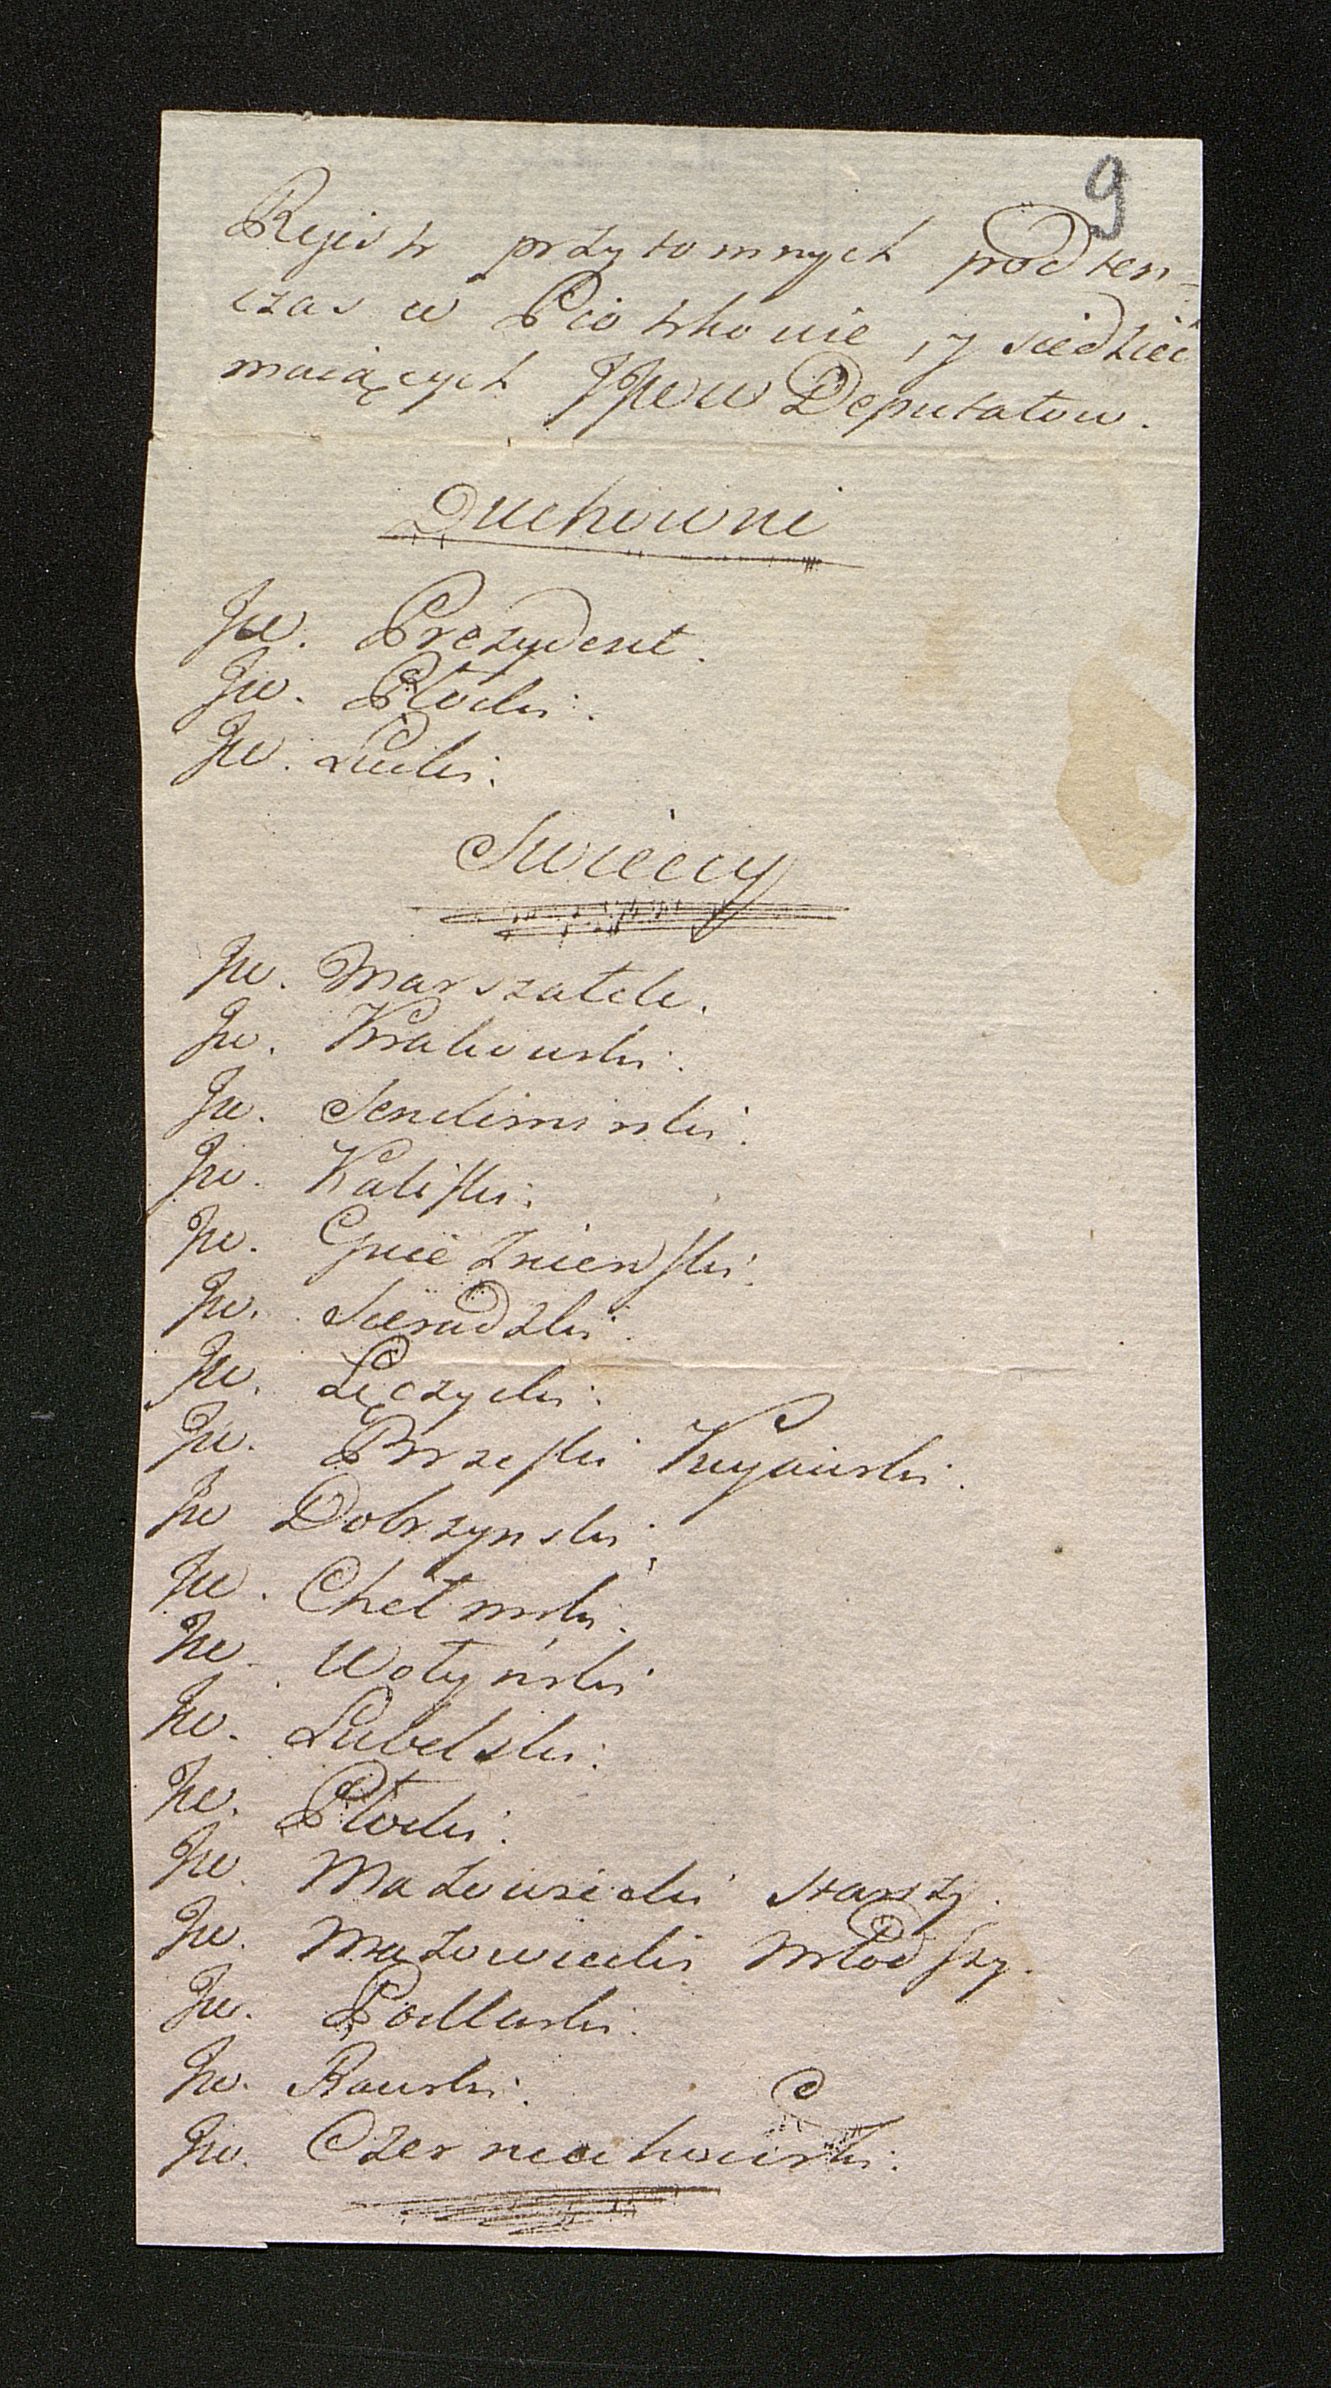 9
Rejestr przytomnych pod ten-
czas w Piotrkowie, y siedzieć
maiących JJWW Deputatow.
Duchowni
JW. Prezydent.
JW. Płocki.
JW. Łucki.
Swieccy
JW. Marszałek.
JW. Krakowski.
JW. Sendomirski.
JW. Kaliski.
JW. Gnieznienski.
JW. Sieradzki.
JW. Łęczycki.
JW. Brzeski Kujawski.
JW Dobrzynski.
JW. Chełmski.
JW. Wołyński
JW. Lubelski.
JW. Płocki.
JW. Mazowiecki starszy.
JW. Mazowiecki młodszy.
JW. Podlaski.
JW. Rawski.
JW. Czerniechowski.